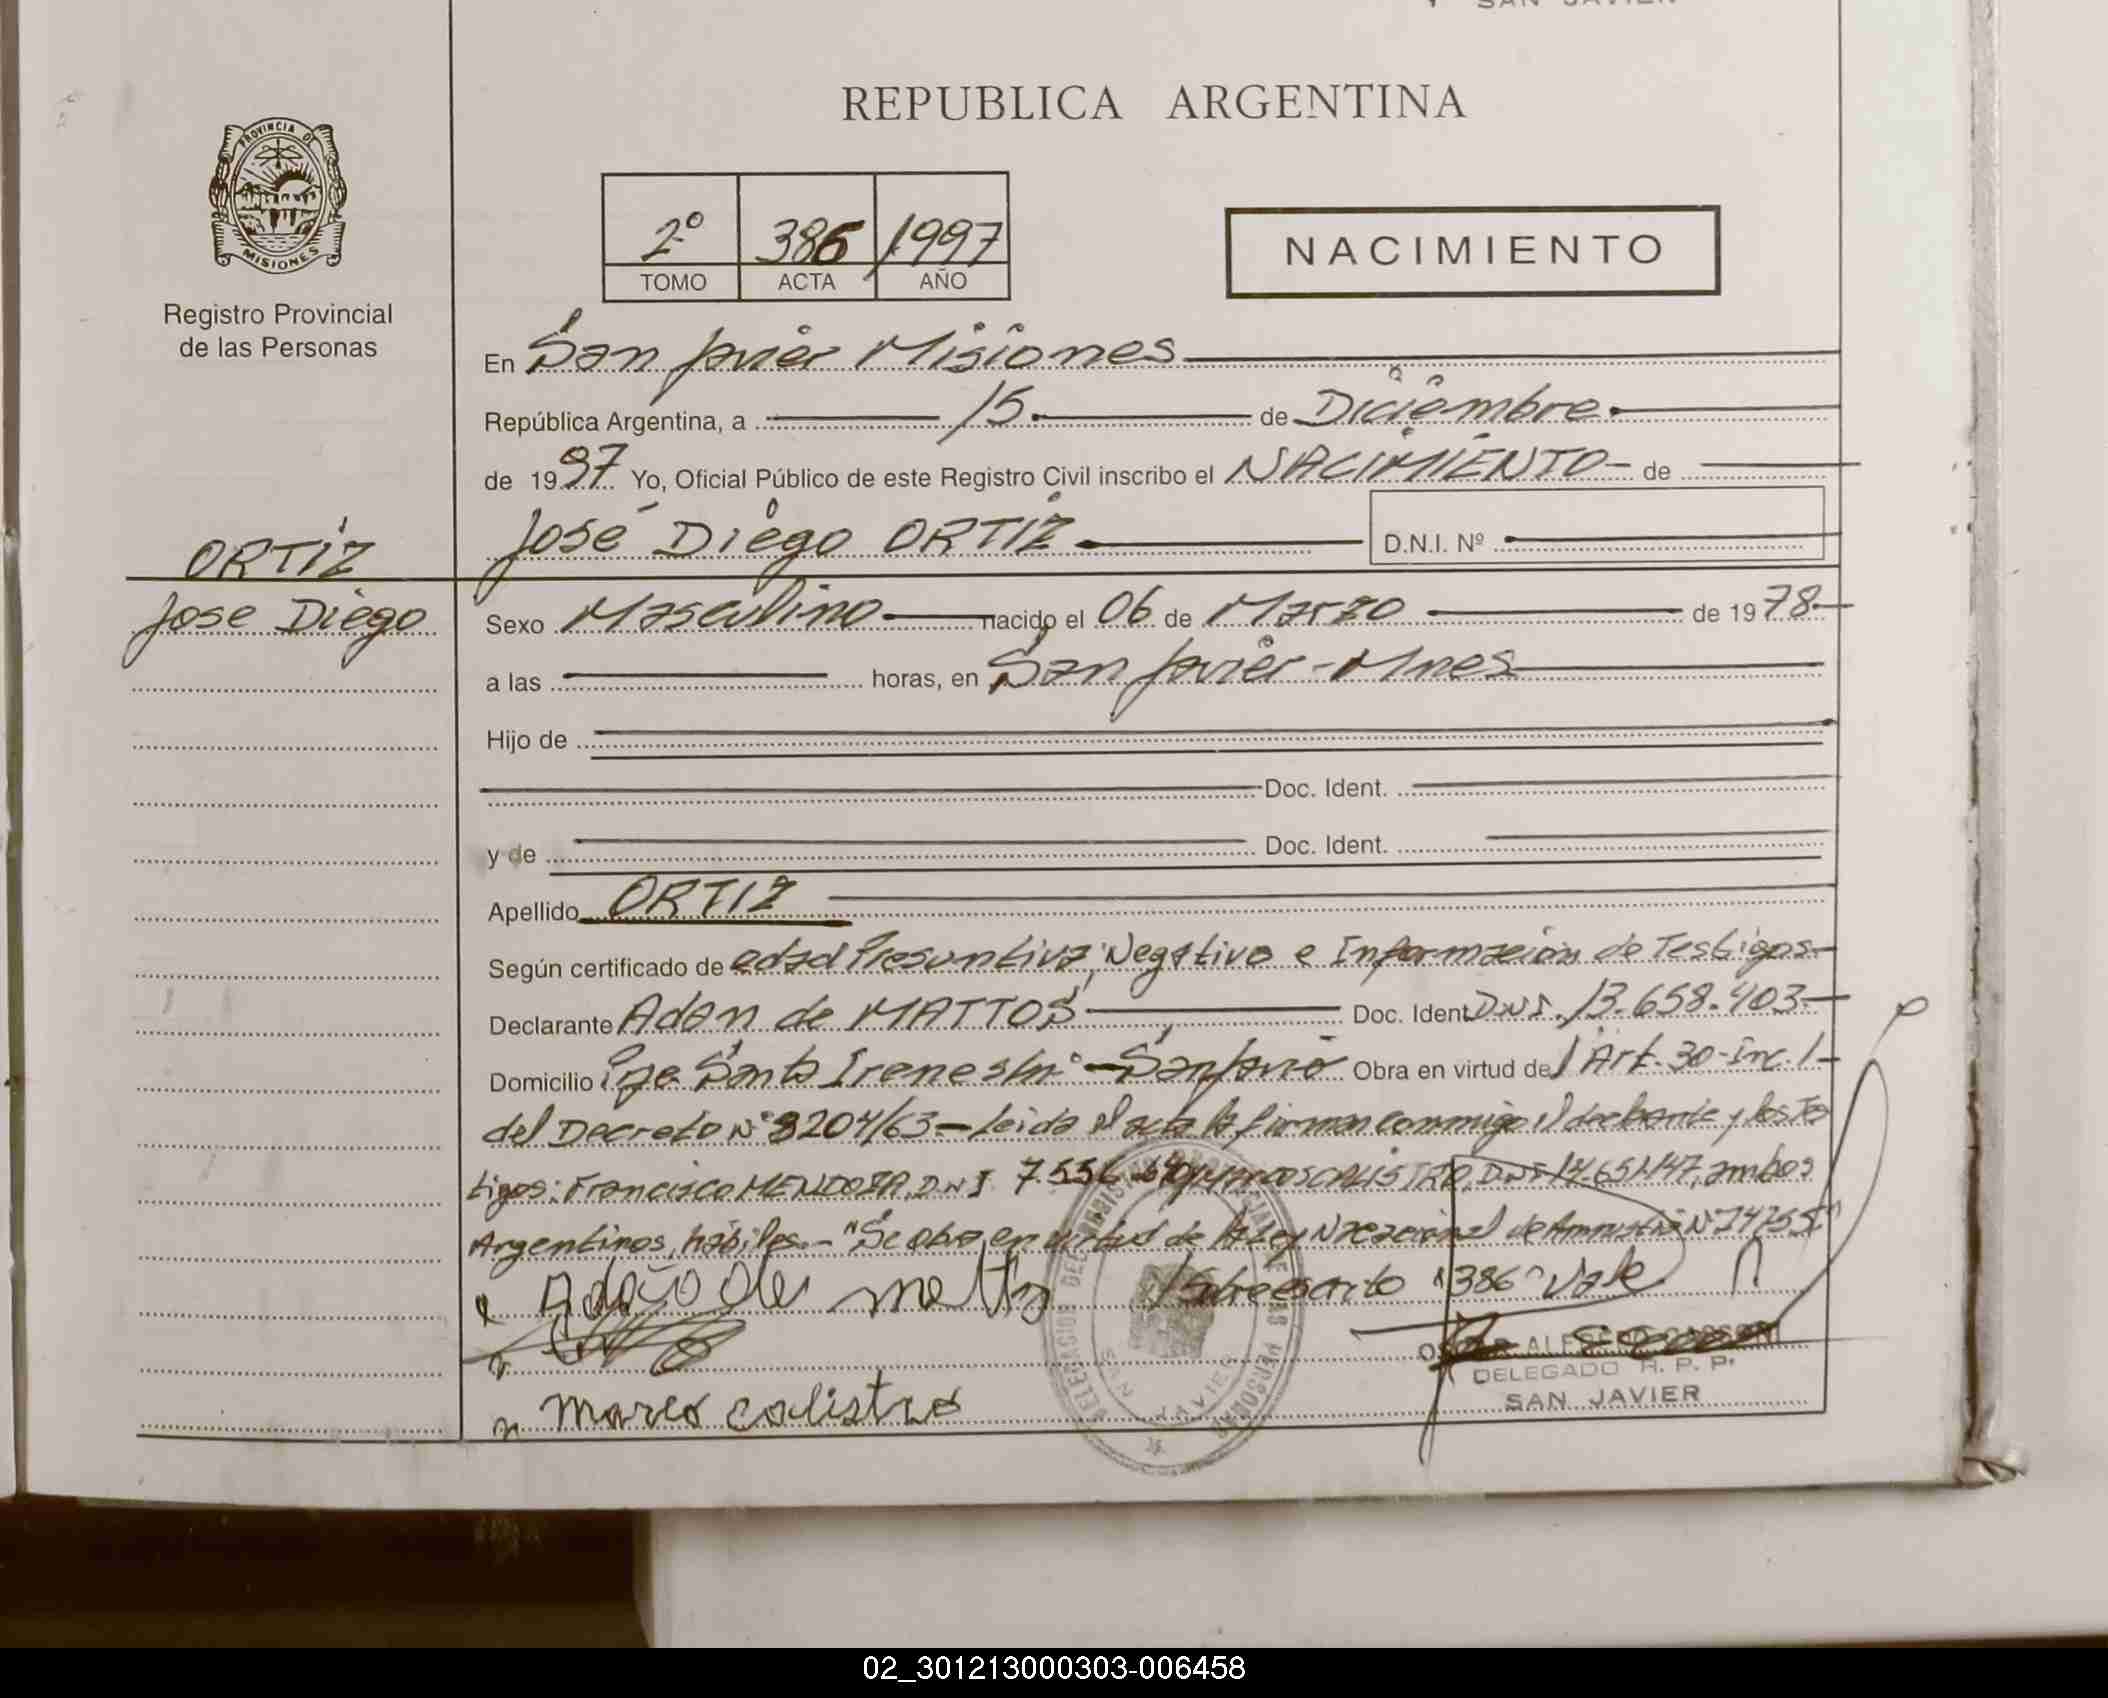 SAN JAVIER
REPUBLICA ARGENTINA
PROVINCIA DE
MISIONES
Registro Provincial
de las Personas
2º 386 1997
TOMO ACTA AÑO
NACIMIENTO
En San Javier Misiones
República Argentina, a 15 de Diciembre
de 1997 Yo, Oficial Público de este Registro Civil inscribo el NACIMIENTO de
José Diego ORTIZ D.N.I. Nº
ORTIZ
Jose Diego
Sexo Masculino nacido el 06 de Marzo de 1978
a las horas, en San Javier - Mnes
Hijo de
Doc. Ident.
y de Doc. Ident.
Apellido ORTIZ
Según certificado de edad Presuntiva, Negativo e Información de Testigos
Declarante Adan de MATTOS Doc. Ident. DNI. 13.658.403
Domicilio Santa Irene Obra en virtud del Art. 30 - inc. 1
del Decreto Nº 8204/63 - Leida el acta la firman conmigo el declarante y los Tes
tigos: Francisco MENDOZA, DNI 7.536. CALISTRO, DNI 14.651.147, ambos
Argentinos, hábiles. - "Se obra en virtud de la Ley Nacional de Amnistia Nº
Sobreescrito "386" Vale
marco calistro
DELEGACION DEL REGISTRO PROVINCIAL DE LAS PERSONAS
SAN JAVIER
DELEGADO R. P. P.
SAN JAVIER
02_301213000303-006458